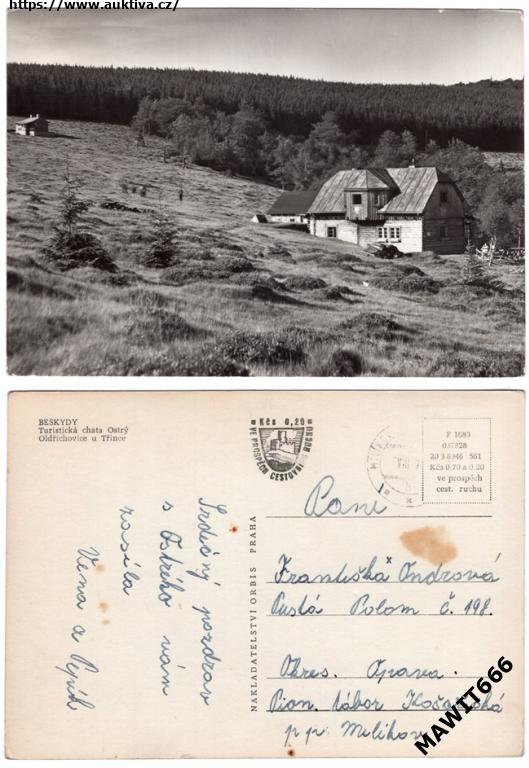 https://www.auktiva.cz/
BESKYDY
Turistická chata Ostrý
Oldřichovice u Třince
Kčs 0,20
VE PROSPĚCH CESTOVNÍHO RUCHU
F 1683
037828
20 3 8946 561
Kčs 0,70 a 0,20
ve prospěch
cest. ruchu
Srdečný pozdrav
s Ostrého vám
zasílá
Vena a Pepík
NAKLADATELSTVÍ ORBIS PRAHA
Paní
Františka Ondrová
Pustá Polom č. 198.
Okres. Opava.
Pion. tábor
p.p.
MAWIT666